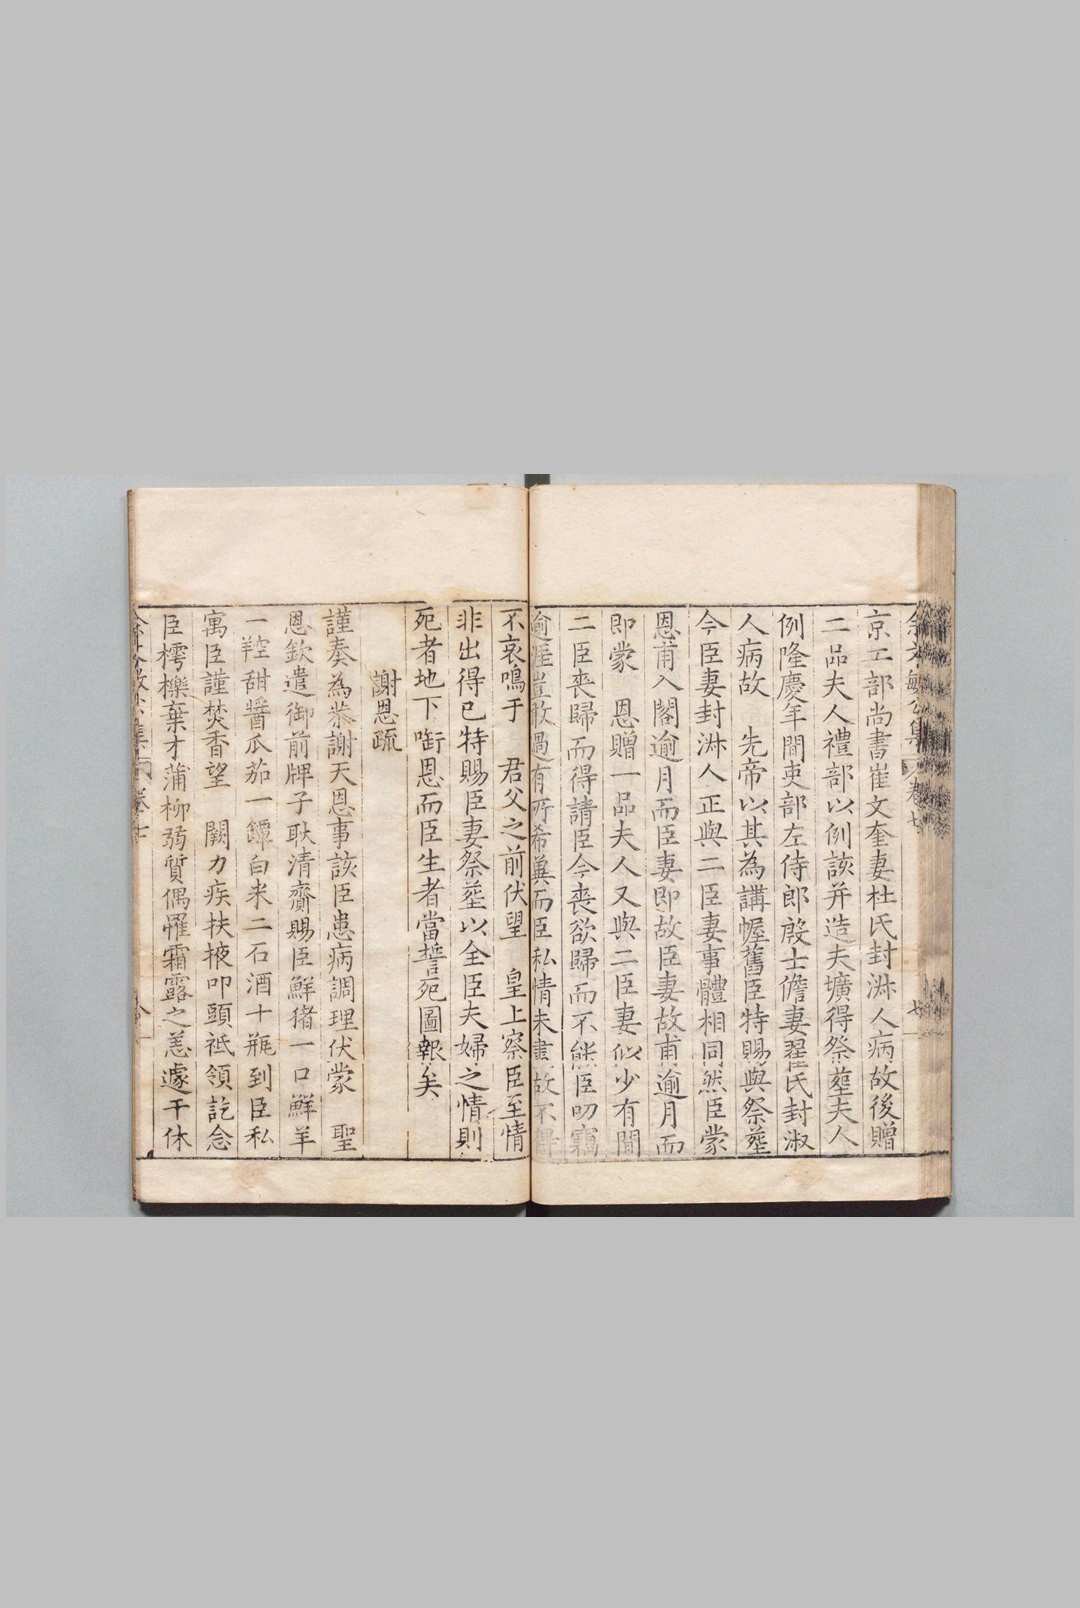 余文敏公集 卷七 七
京工部尚書崔文奎妻杜氏封淑人病故後贈
二品夫人禮部以例該并造夫壙得祭塟夫人
例隆慶年間吏部左侍郎殷士儋妻翟氏封淑
人病故 先帝以其為講幄舊臣特賜與祭塟
今臣妻封淑人正與二臣妻事體相同然臣蒙
恩甫入閣逾月而臣妻即故臣妻故甫逾月而
即蒙 恩贈一品夫人又與二臣妻似少有間
二臣喪歸而得請臣今喪欲歸而不能臣叨竊
逾涯豈敢過有所希兾而臣私情未盡故不得
不哀鳴于 君父之前伏望 皇上察臣至情
非出得已特賜臣妻祭塟以全臣夫婦之情則
死者地下啣恩而臣生者當誓死圖報矣
謝恩疏
謹奏為恭謝天恩事該臣患病調理伏蒙 聖
恩欽遣御前牌子耿清齎賜臣鮮猪一口鮮羊
一羫甜醬瓜茄一罈白米二石酒十瓶到臣私
寓臣謹焚香望 闕力疾扶掖叩頭祗領訖念
臣樗櫟棄才蒲柳弱質偶罹霜露之恙遽干休